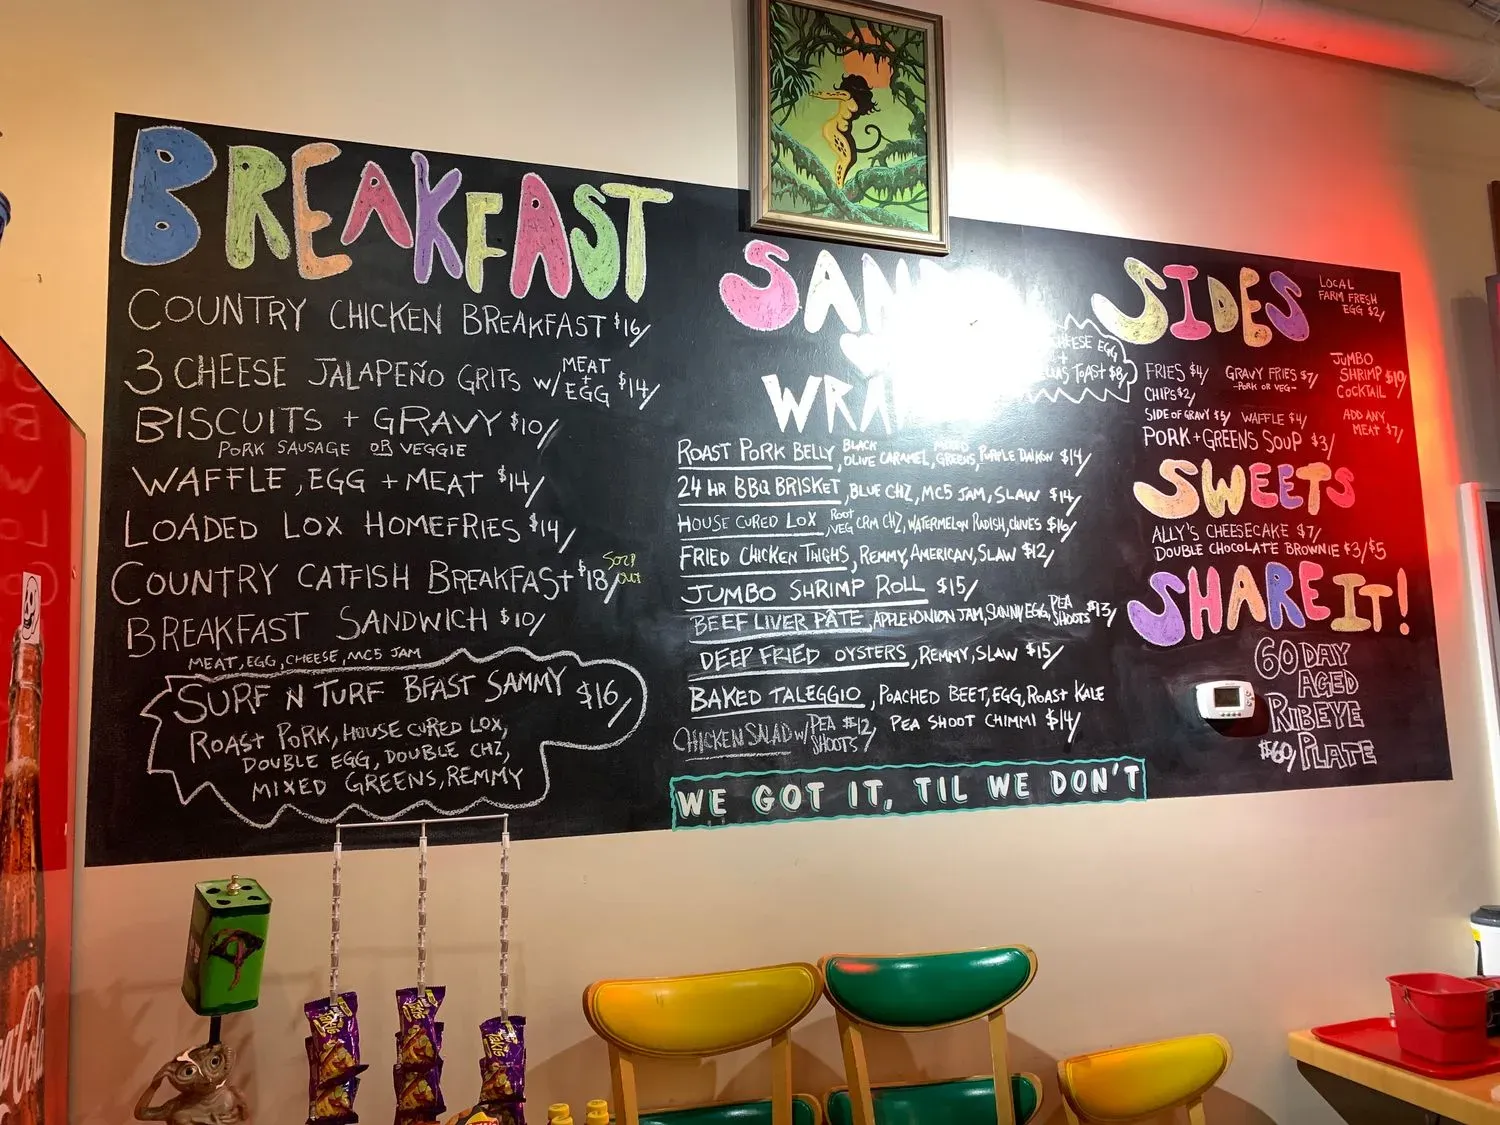 BREAKFAST
COUNTRY CHICKEN BREAKFAST $16/
3 CHEESE JALAPEÑO GRITS W/ MEAT + EGG $14/
BISCUITS + GRAVY $10/
PORK SAUSAGE OR VEGGIE
WAFFLE, EGG + MEAT $14/
LOADED LOX HOMEFRIES $14/
COUNTRY CATFISH BREAKFAST $18/ SOLD OUT
BREAKFAST SANDWICH $10/
MEAT, EGG, CHEESE, MC5 JAM
SURF N TURF BFAST SAMMY $16/
ROAST PORK, HOUSE CURED LOX,
DOUBLE EGG, DOUBLE CHZ,
MIXED GREENS, REMMY
CHEESE EGG
+
TOAST $8/
ROAST PORK BELLY, BLACK OLIVE CARAMEL, GREENS, PURPLE DAIKON $14/
24 HR BBQ BRISKET, BLUE CHZ, MC5 JAM, SLAW $14/
HOUSE CURED LOX, ROOT VEG CRM CHZ, WATERMELON RADISH, CHIVES $16/
FRIED CHICKEN THIGHS, REMMY, AMERICAN, SLAW $12/
JUMBO SHRIMP ROLL $15/
BEEF LIVER PÂTE, APPLE+ONION JAM, SUNNY EGG, PEA SHOOTS $13/
DEEP FRIED OYSTERS, REMMY, SLAW $15/
BAKED TALEGGIO, POACHED BEET, EGG, ROAST KALE
PEA SHOOT CHIMMI $14/
CHICKEN SALAD W/ PEA SHOOTS $12/
WE GOT IT, TIL WE DON'T
SIDES
LOCAL
FARM FRESH
EGG $2/
FRIES $4/ GRAVY FRIES $7/
-PORK OR VEG-
CHIPS $2/
SIDE OF GRAVY $5/ WAFFLE $4/
PORK + GREENS SOUP $3/
JUMBO
SHRIMP
COCKTAIL
ADD ANY
MEAT $7/
SWEETS
ALLY'S CHEESECAKE $7/
DOUBLE CHOCOLATE BROWNIE $3/$5
SHARE IT!
60 DAY
AGED
RIBEYE
$60/ PLATE
TAKIS